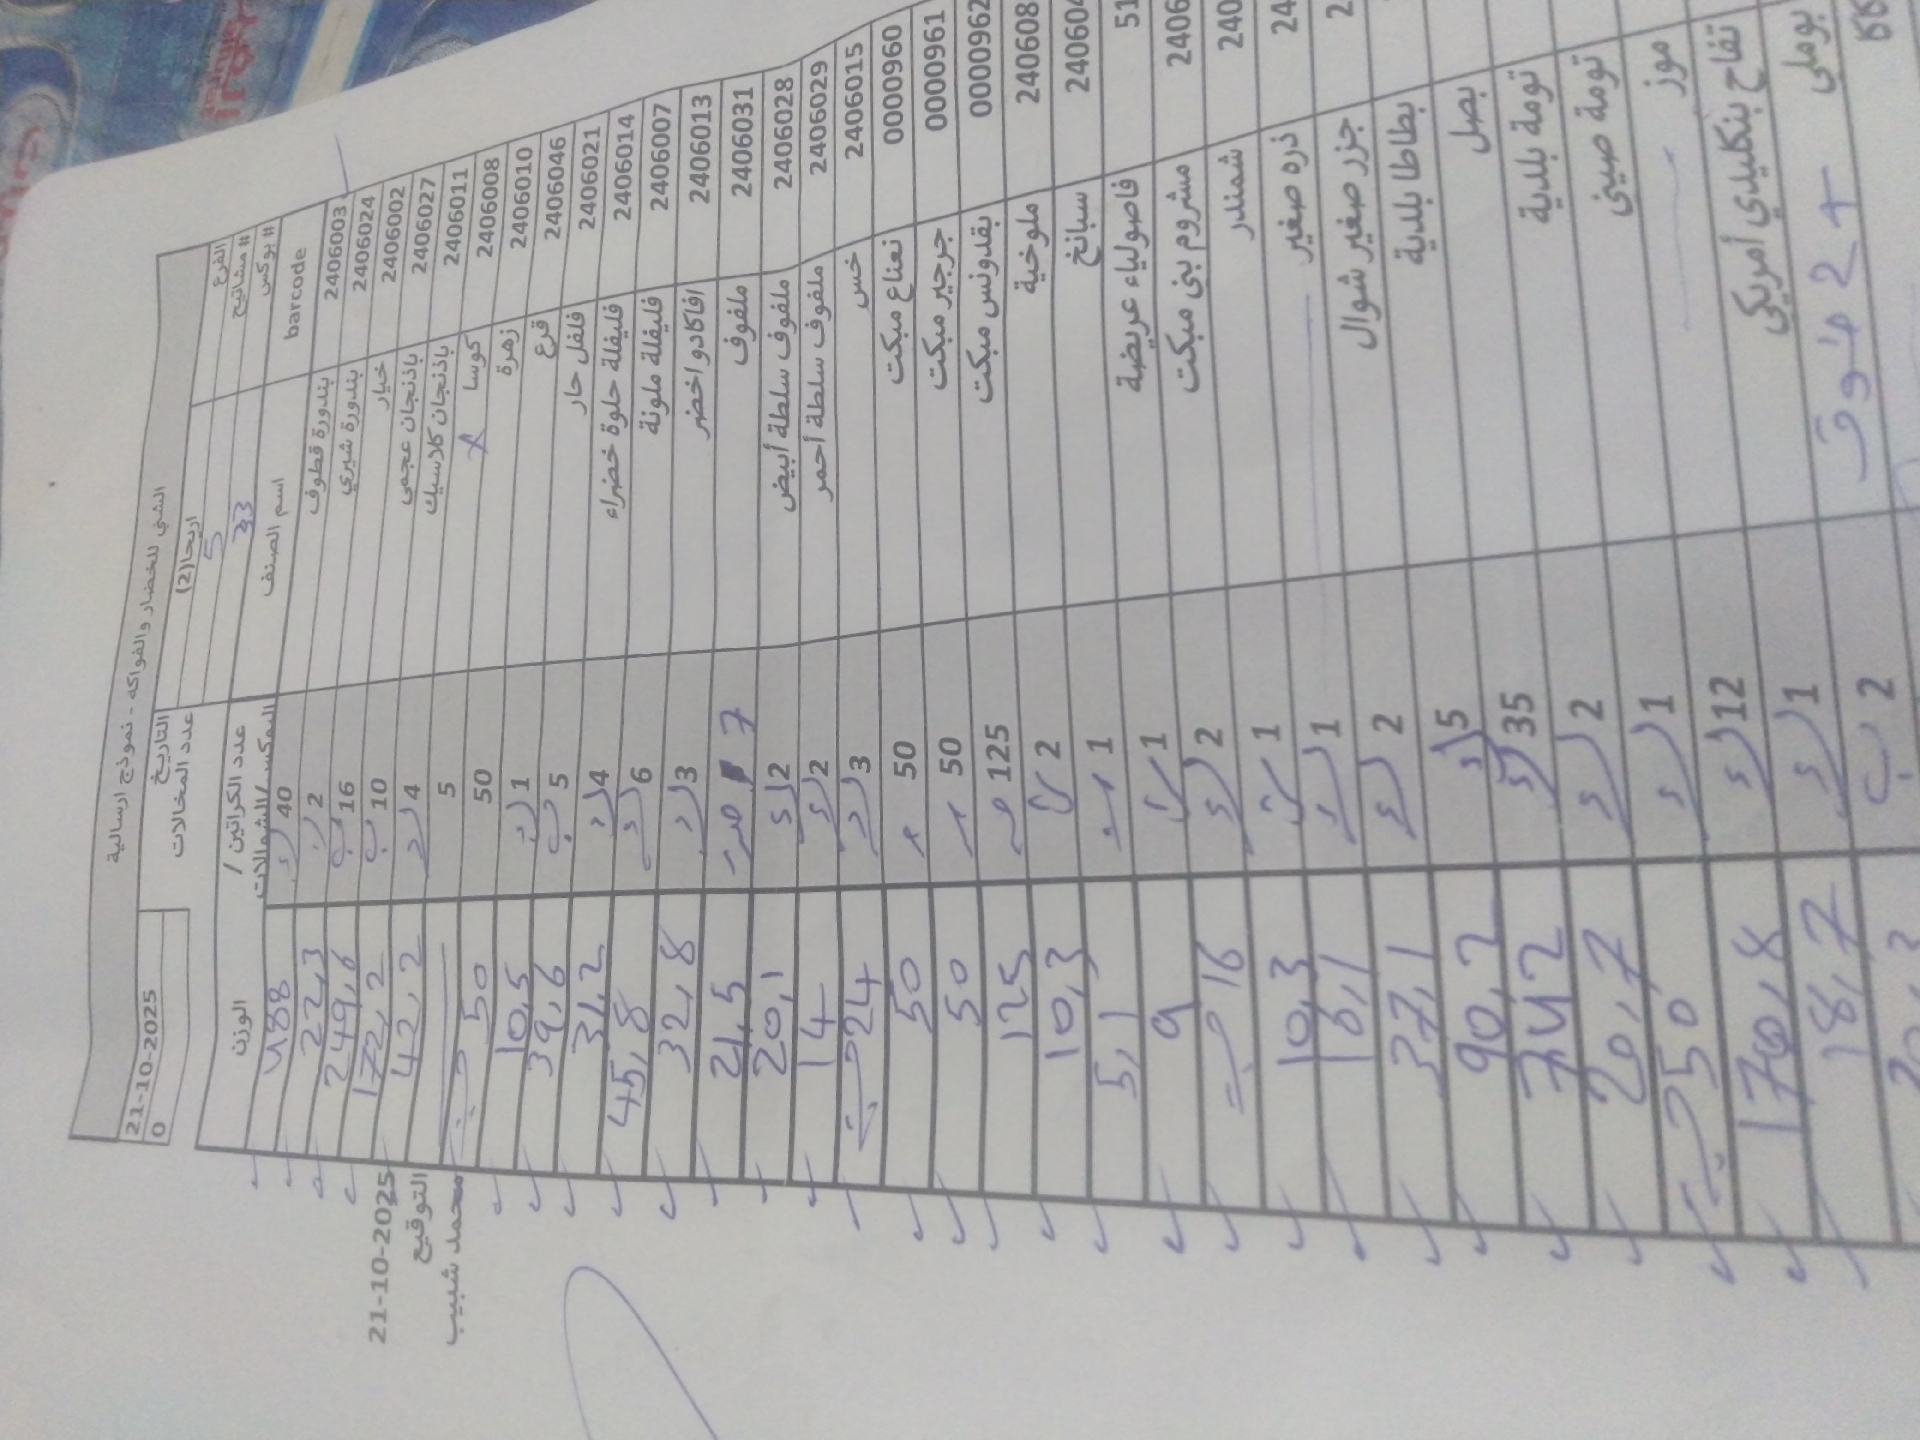 الشني للخضار والفواكه - نموذج ارسالية
الفرع اريحا(2) التاريخ 21-10-2025
# مشاتيح 5 عدد المخالات 0
# بوكس 33
barcode اسم الصنف عدد الكراتين / البوكس/الشوالات الوزن
2406003 بندورة قطوف 40 488
2406024 بندورة شيري 2 22,3
2406002 خيار 16 249,6
2406027 باذنجان عجمي 10 172,2
2406011 باذنجان كلاسيك 4 42,2
2406008 كوسا 5
2406010 زهرة 50 50
2406046 قرع 1 10,5
2406021 فلفل حار 5 39,6
2406014 فليفلة حلوة خضراء 4 31,2
2406007 فليفلة ملونة 6 45,8
2406013 افاكادو اخضر 3 32,8
2406031 ملفوف 7 21,5
2406028 ملفوف سلطة أبيض 2 20,1
2406029 ملفوف سلطة أحمر 2 14
2406015 خس 3 24
0000960 نعناع مبكت 50 50
0000961 جرجير مبكت 50 50
0000962 بقدونس مبكت 125 125
240608 ملوخية 2 10,3
240604 سبانخ 1 5,1
51 فاصولياء عريضة 1 9
2406 مشروم بني مبكت 2 16
240 شمندر 1 10,3
24 ذره صغير 1
2 جزر صغير شوال 2 37,1
بطاطا بلدية 5 90,2
بصل 35 742
تومة بلدية 2 20,7
تومة صيني 1 50
موز 12 170,8
تفاح بنكليدي أمريكي 1 18,7
بوملي 2
21-10-2025
التوقيع
محمد شبيب